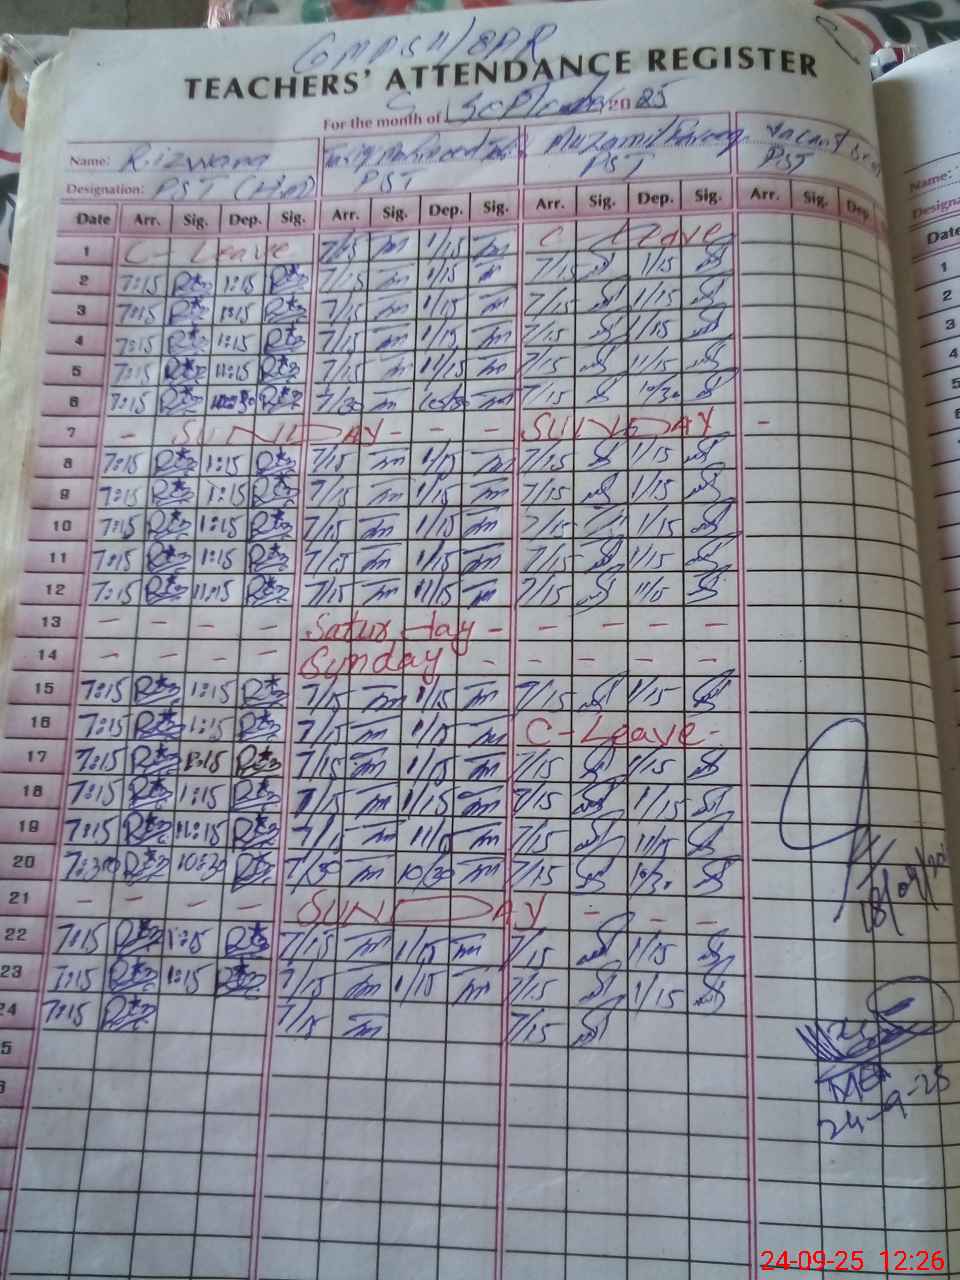 TEACHERS' ATTENDANCE REGISTER
For the month of September 2025
Name: Rizwana Tariq Mehmood Muzamil Vacant
Designation: PST PST PST PST
Date Arr. Sig. Dep. Sig. Arr. Sig. Dep. Sig. Arr. Sig. Dep. Sig. Arr. Sig. Dep.
1 C-Leave 7/15 Tm 1/15 Tm C-Leave
2 7:15 1:15 7/15 Tm 1/15 7/15 1/15
3 7:15 1:15 7/15 Tm 1/15 Tm 7/15 1/15
4 7:15 1:15 7/15 Tm 1/15 Tm 7/15 1/15
5 7:15 11:15 7/15 Tm 11/15 Tm 7/15 11/15
6 7:15 7/30 Tm 10/30 Tm 7/15 10/30
7 - SUNDAY - - - SUNDAY -
8 7:15 1:15 7/15 Tm 1/15 Tm 7/15 1/15
9 7:15 1:15 7/15 Tm 1/15 Tm 7/15 1/15
10 7:15 1:15 7/15 Tm 1/15 Tm 7/15 1/15
11 7:15 1:15 7/15 Tm 1/15 Tm 7/15 1/15
12 7:15 11:15 7/15 Tm 11/15 Tm 7/15 11/15
13 - - - - Saturday - - - - -
14 - - - - Sunday - - - - -
15 7:15 1:15 7/15 Tm 1/15 Tm 7/15 1/15
16 7:15 1:15 7/15 Tm 1/15 Tm C-Leave-
17 7:15 1:15 7/15 Tm 1/15 Tm 7/15 1/15
18 7:15 1:15 7/15 Tm 1/15 Tm 7/15 1/15
19 7:15 11:15 7/15 Tm 11/15 Tm 7/15 11/15
20 7:30 10:30 7/30 Tm 10/30 Tm 7/15 10/30
21 - - - - SUNDAY - - -
22 7:15 1:15 7/15 Tm 1/15 Tm 7/15 1/15
23 7:15 1:15 7/15 Tm 1/15 Tm 7/15 1/15
24 7:15 7/15 Tm 7/15
5
MEA
24-9-25
Name:
Date
1
2
3
4
5
6
24-09-25 12:26